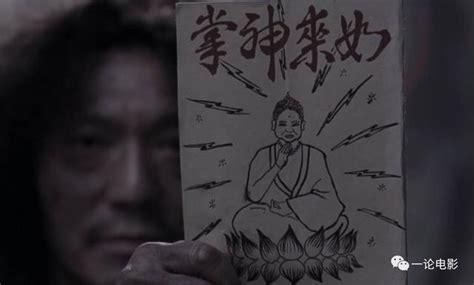 如來神掌
一论电影